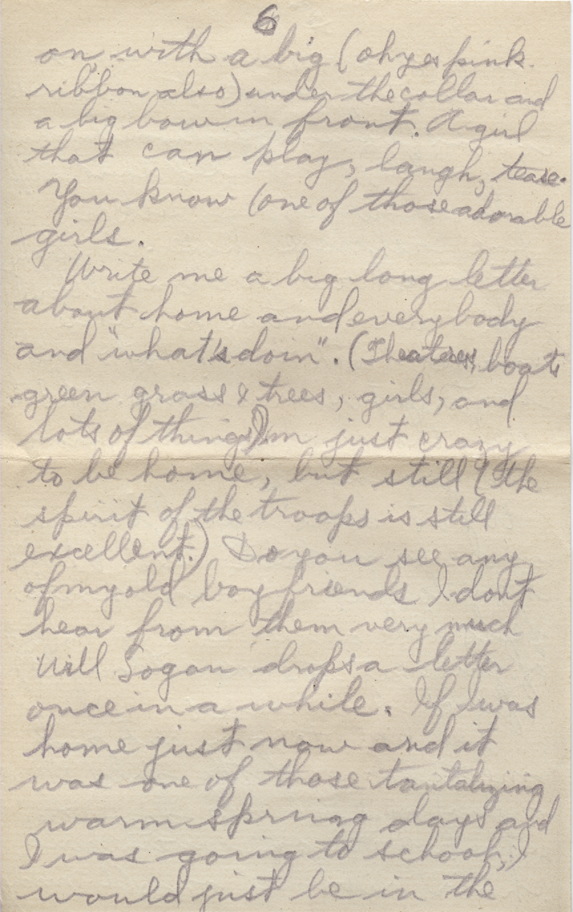 6
on with a big (oh yes pink
ribbon also) under the collar and
a big bow in front. A girl
that can play, laugh, tease.
You know (one of those adorable
girls.
Write me a big long letter
about home and everybody
and "what's doin". (Theatres, boats
green grass & trees, girls, and
lots of things) I'm just crazy
to be home, but still (the
spirit of the troops is still
excellent.) Do you see any
of my old boy friends I dont
hear from them very much
Will Logan drops a letter
once in a while. If I was
home just now and it
was one of those tantalizing
warm spring days and
I was going to school, I
would just be in the